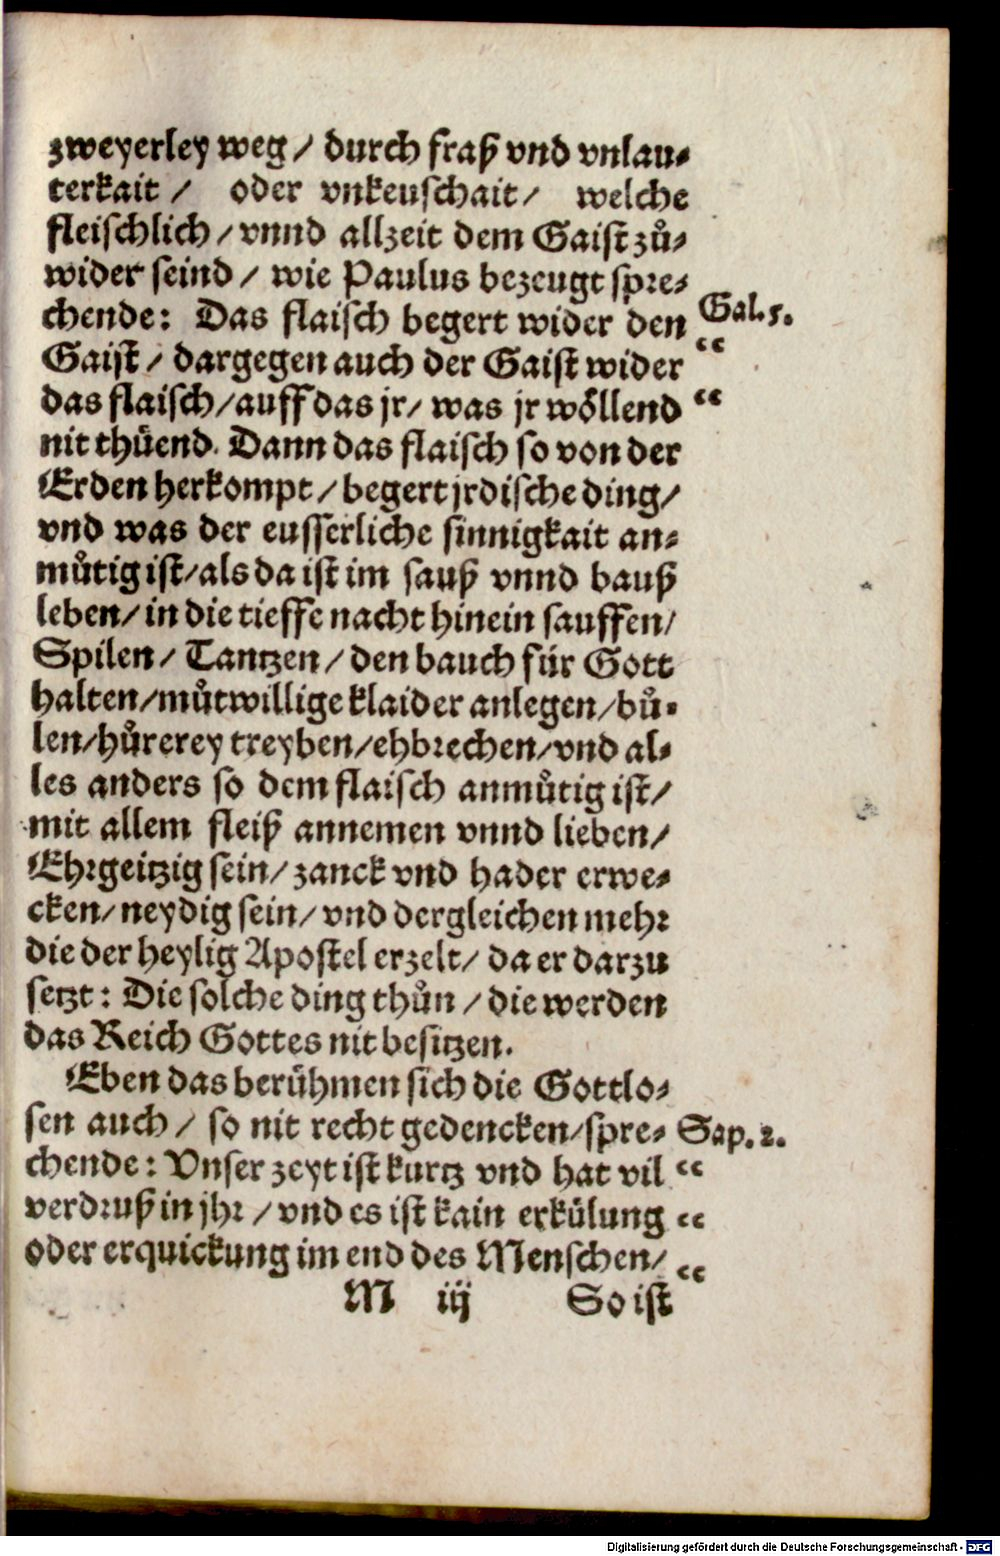 zweyerley weg / durch fraß vnd vnlau⸗
terkait / oder vnkeuschait / welche
fleischlich / vnnd allzeit dem Gaist zů⸗
wider seind / wie Paulus bezeugt spre⸗
chende: Das flaisch begert wider den Gal. 5.
Gaist / dargegen auch der Gaist wider “
das flaisch / auff das jr / was jr wöllend “
nit thüend. Dann das flaisch so von der
Erden herkompt / begert jrdische ding /
vnd was der eusserliche sinnigkait an⸗
můtig ist / als da ist im sauß vnnd bauß
leben / in die tieffe nacht hinein sauffen /
Spilen / Tantzen / den bauch für Gott
halten / můtwillige klaider anlegen / bů⸗
len / hůrerey treyben / ehbrechen / vnd al⸗
les anders so dem flaisch anmůtig ist /
mit allem fleiß annemen vnnd lieben /
Ehrgeitzig sein / zanck vnd hader erwe⸗
cken / neydig sein / vnd dergleichen mehr
die der heylig Apostel erzelt / da er darzu
setzt: Die solche ding thůn / die werden
das Reich Gottes nit besitzen.
Eben das berühmen sich die Gottlo⸗
sen auch / so nit recht gedencken / spre⸗ Sap. 2.
chende: Vnser zeyt ist kurtz vnd hat vil “
verdruß in jhr / vnd es ist kain erkülung “
oder erquickung im end des Menschen / “
M iij So ist
Digitalisierung gefördert durch die Deutsche Forschungsgemeinschaft - DFG